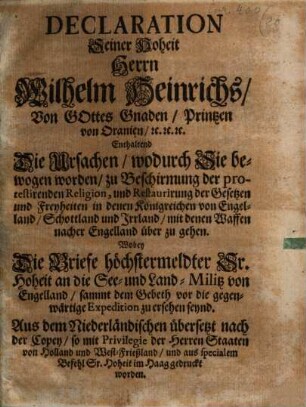 DECLARATION
Seiner Hoheit
Herrn
Wilhelm Heinrichs/
Von GOttes Gnaden / Printzen
von Oranien / ꝛc. ꝛc. ꝛc.
Enthaltend
Die Ursachen / wodurch Sie be-
wogen worden / zu Beschirmung der pro-
testirenden Religion, und Restaurirung der Gesetzen
und Freyheiten in denen Königreichen von Engel-
land / Schottland und Irrland / mit denen Waffen
nacher Engelland über zu gehen.
Wobey
Die Briefe höchstermeldter Sr.
Hoheit an die See- und Land- Militz von
Engelland / sammt dem Gebeth vor die gegen-
wärtige Expedition zu ersehen seynd.
Aus dem Niederländischen übersetzt nach
der Copey / so mit Privilegie der Herren Staaten
von Holland und West-Frießland / und aus specialem
Befehl Sr. Hoheit im Haag gedruckt
worden.